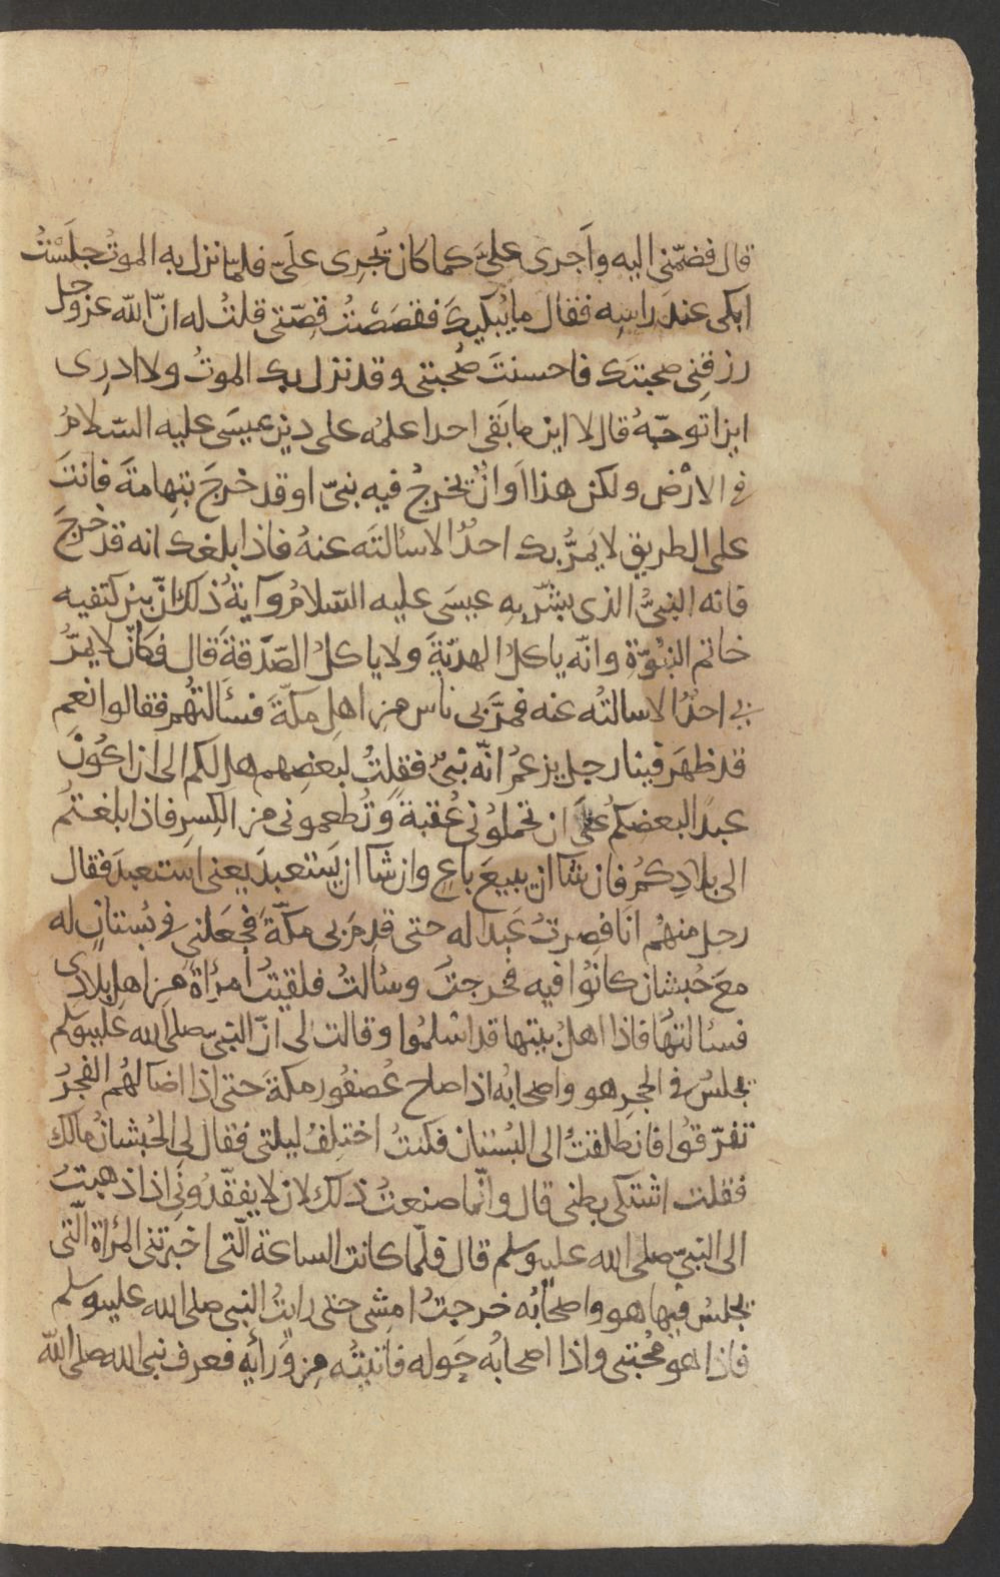 قال فضمّنى اليه واَجرى علىَّ كما كان تُجرِى علَىّ فلمّا نزل به الموتُ جلَسْتُ
ابكى عندَ راسِه فقال ما يُبْكيكَ فقصَصْتُ قِصّتى قلتُ له انّ اللّه عز وجل
رزقنِى صحبتَك فاحسنتَ صُحبتى وقد نزل بك الموتُ ولا ادرِى
اين اتوجّهُ قال لا اين ما بَقى احد اعلمُه على دينِ عيسَى عليه السّلامُ
فى الارْض ولكن هذا اَوانٌ يخرجُ فيه نبىّ او قد خرجَ بتِهامةَ فانتَ
على الطريق لا يَمرُّ بك احدٌ الا سالتَه عنهُ فاذا بلغك انه قد خرجَ
فانه النبىُّ الذى بشّر بِه عيسَى عليه السّلامُ وآيةُ ذلك انّ بين كتفيه
خاتم النبُوّةِ وانّه ياكلُ الهديّةَ ولا ياكلُ الصَّدقةَ قال فكانّ لا يمرُّ
بى احدٌ الا سالتُه عنه فمرَّ بى ناس من اهلِ مكّةَ فسئَالتُهُم فقالوا نعم
قد ظهَر فينا رجل يزعمُ انّه نبىٌ فقلتُ لبَعضِهم هل لكم الى ان اكُونَ
عبدًا لبعضكُم علَى ان تحملوُنى عُقبةً وَتُطعمونى من الكِسرِ فاذا بلغتُم
الى بلادِكُم فان شآ ان يبيعَ باعِ وان شآ ان يَستعبدَ يعنى استعبدَ فقال
رجل منهُم انَا فصِرتُ عَبدا له حتى قدِمَ بى مكّةَ فجَعَلنى فى بُستانٍ له
مَعَ حُبشان كانُوا فيه فخرجتُ وسئالتُ فلقيتُ امرُاةً من اهل بلادى
فسئالتهَا فاذا اهلُ بيتها قد اسْلموا وقالت لى انّ النبىّ صلى الله عليه وسلم
يجلسُ فى الحِجرِ هو واصحابُه اذا صاح عُصفُور مكةَ حتى اذا اضآ لهُم الفجرُ
تفرّقوُا فانطلقتُ الى البُستان فكنتُ اختِلفُ ليلتى فقال لى الحُبشانُ مالك
فقلت اشتكى بطنى قال وانّما صنعتُ ذلك لان لا يفقّدُونِى اذا ذهبتُ
الى النبىّ صلى الله عليه وسلم قال فلّما كانت الساعة الّتى اخبرتنى المرُاة الّتى
يجلسُ فيها هو واصحابُه خرجتُ امشِى حتى رايتُ النبى صلى الله عليه وسلم
فاذا هو مُحتبى واذا اصحابُه حَوله فاتيتُه مِن وَرائِه فعرف نبى الله صلى اللّه